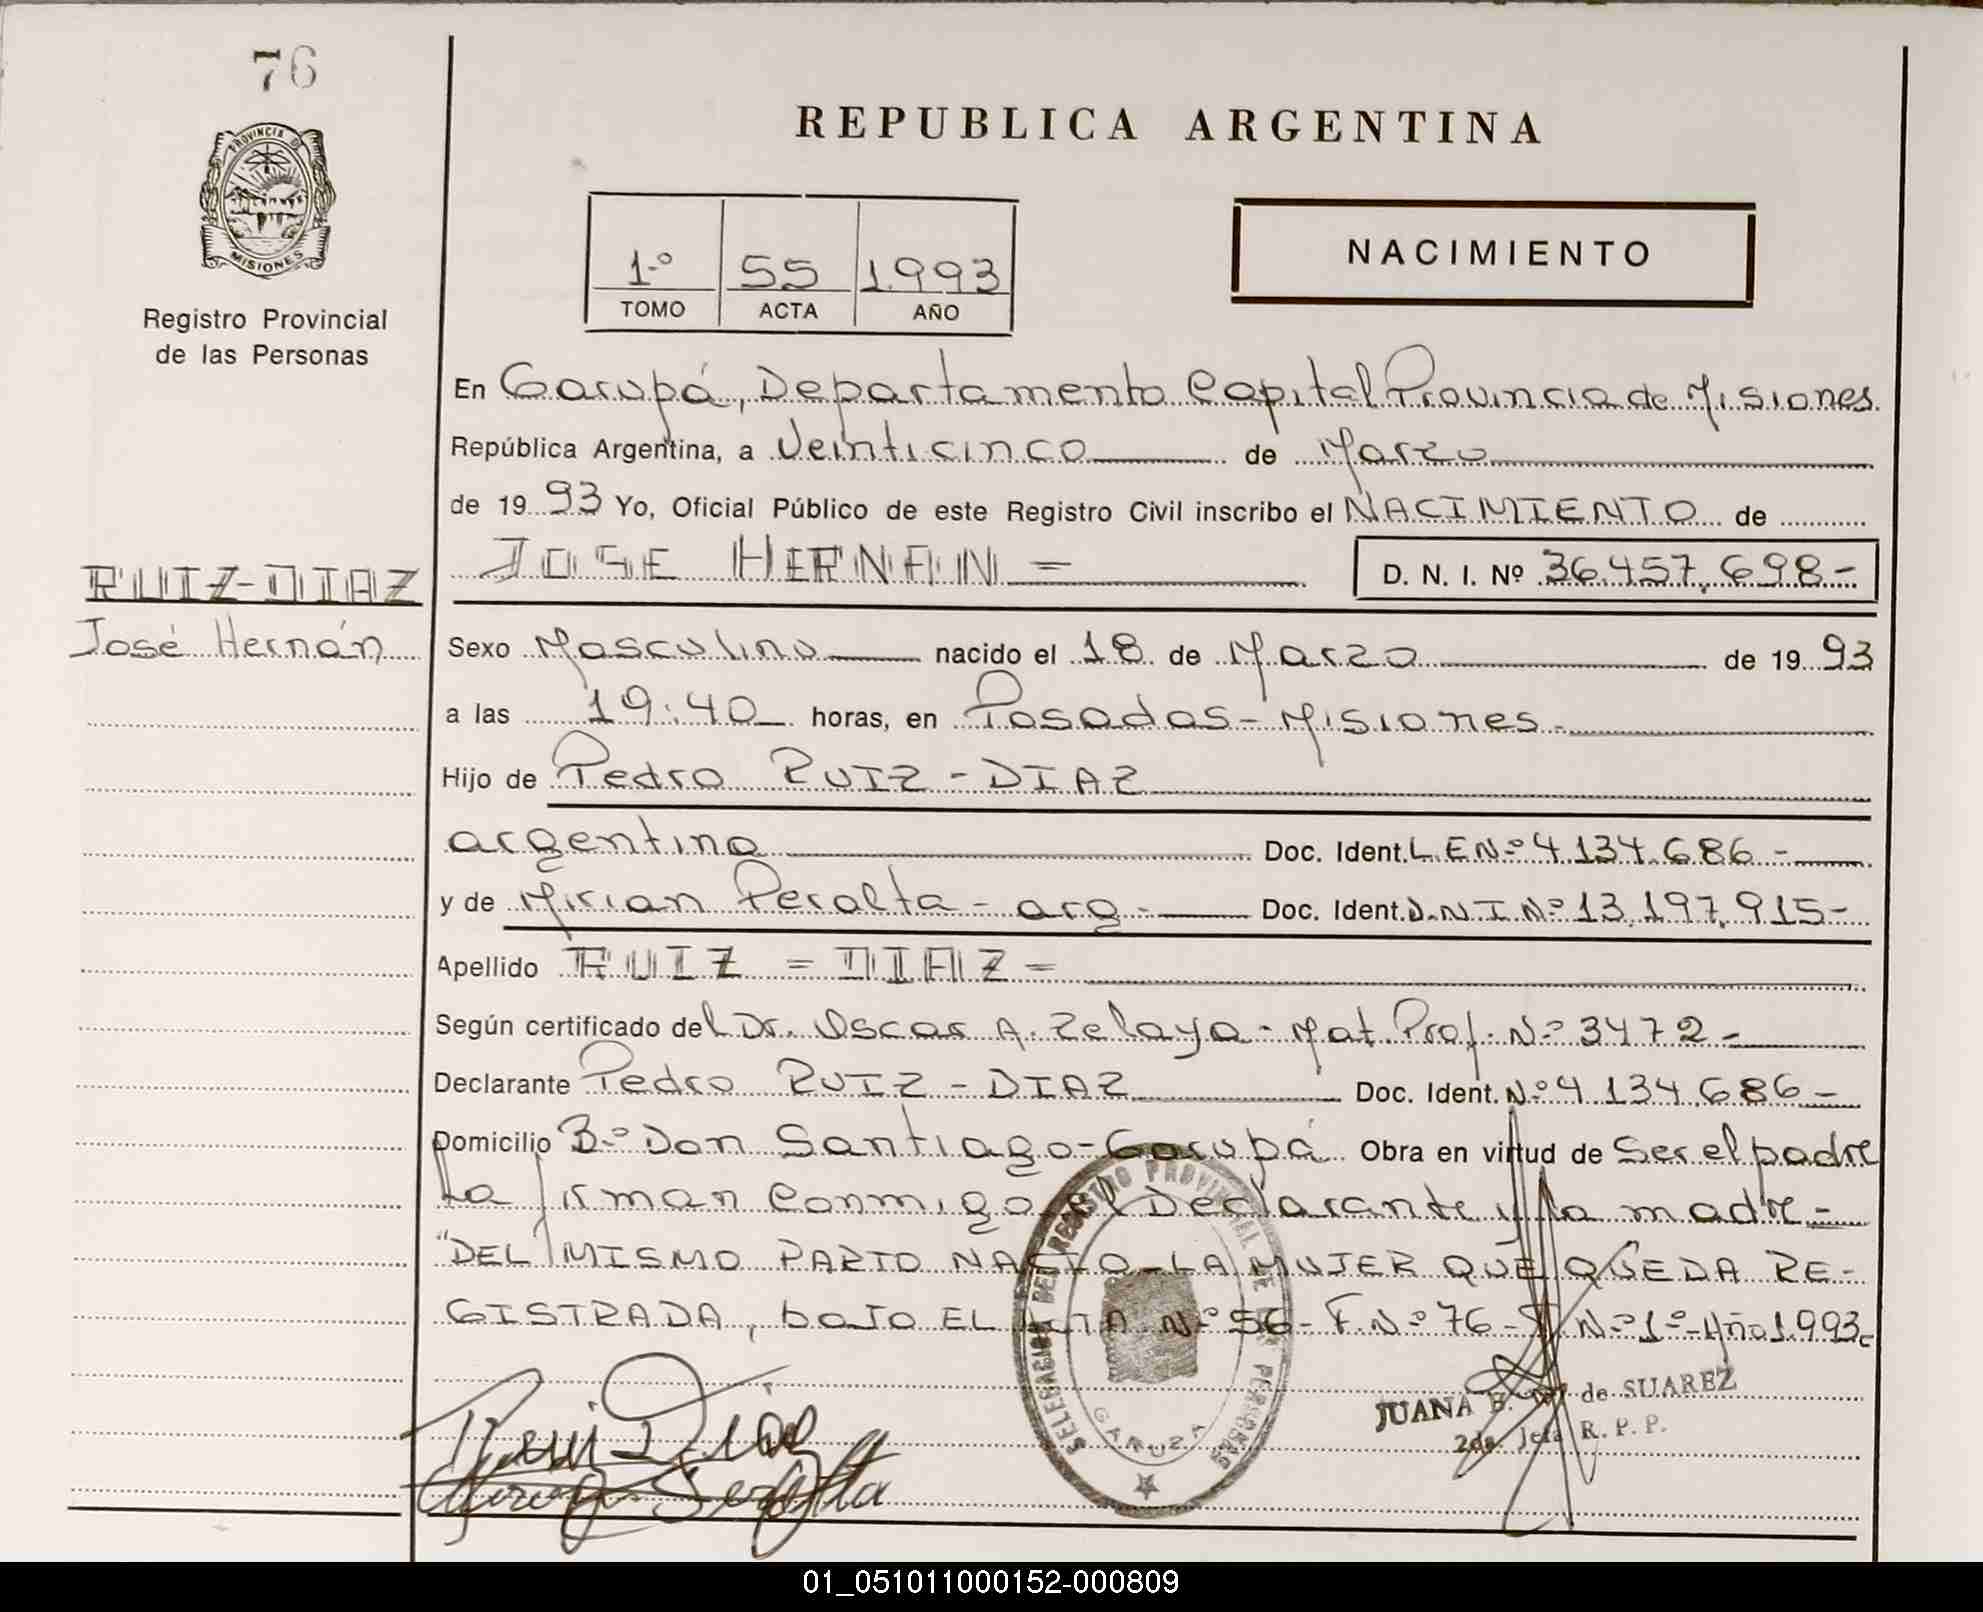 76
REPUBLICA ARGENTINA
PROVINCIA DE
MISIONES
Registro Provincial
de las Personas
1º 55 1.993
TOMO ACTA AÑO
NACIMIENTO
En Garupá, Departamento Capital Provincia de Misiones
República Argentina, a Veinticinco de Marzo
de 19 93 Yo, Oficial Público de este Registro Civil inscribo el NACIMIENTO de
JOSE HERNAN =
D. N. I. Nº 36.457.698-
RUIZ-DIAZ
José Hernán
Sexo Masculino nacido el 18 de Marzo de 19 93
a las 19:40 horas, en Posadas - Misiones.
Hijo de Pedro RUIZ - DIAZ
argentino Doc. Ident. L.E Nº 4.134.686 -
y de Mirian Peralta - arg - Doc. Ident. D.N.I Nº 13.197.915-
Apellido RUIZ = DIAZ =
Según certificado del Dr. Oscar A. Zelaya - Mat. Prof. Nº 3472 -
Declarante Pedro RUIZ - DIAZ Doc. Ident. Nº 4.134.686 -
Domicilio Bº Don Santiago - Garupá Obra en virtud de Ser el padre
firman Conmigo el Declarante y la madre -
"DEL MISMO PARTO NACIO - LA MUJER QUE QUEDA RE-
GISTRADA, bajo EL ACTA Nº 56 - F. Nº 76 - T Nº 1º - Año 1.993
DELEGACION DEL REGISTRO PROVINCIAL DE PERSONAS
GARUPA
JUANA E. de SUAREZ
2da. Jefa R. P. P.
Ruiz Diaz
Peralta
01_051011000152-000809